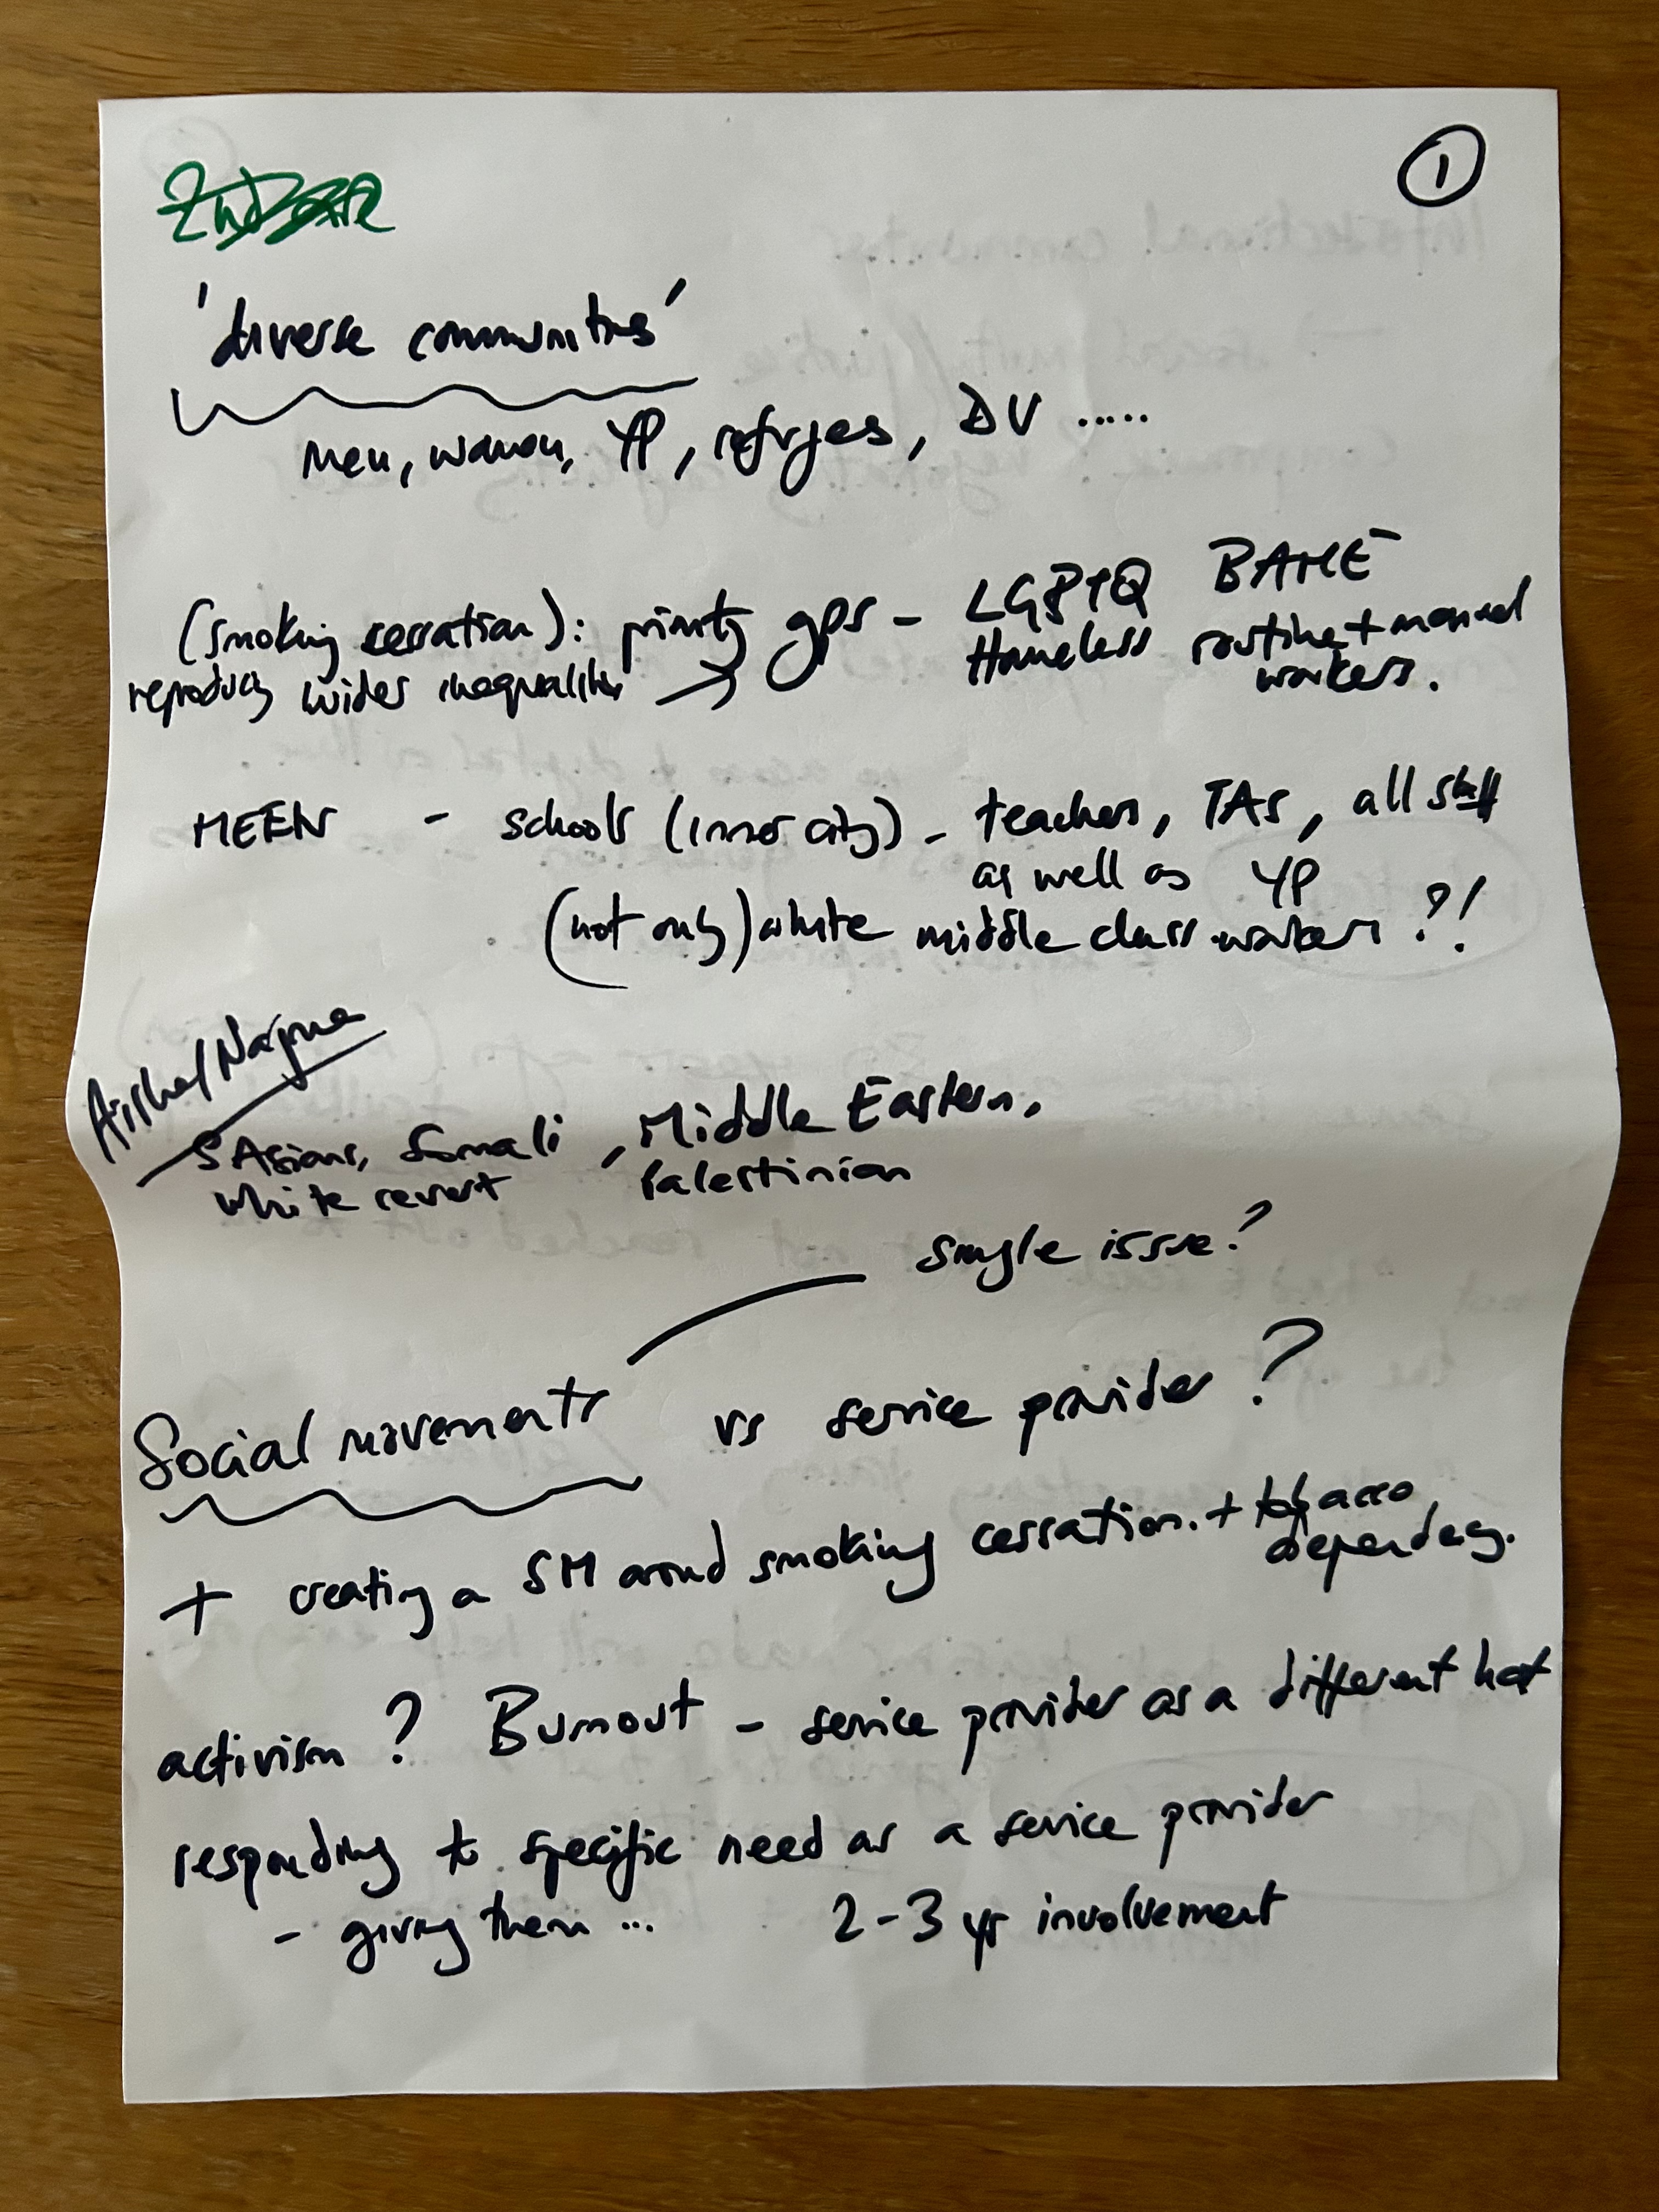 ①
'diverse communities'
men, women, YP, refugees, DV .....
(smoking cessation): priority gps - LGBTQ BAME
Homeless routine + manual workers.
reproducing wider inequalities →
MEEN - schools (inner city) - teachers, TAs, all staff
as well as YP
(not only) white middle class workers ?!
S Asians, Somali, Middle Eastern,
white revert Palestinian
single issue?
Social movements vs service provider ?
+ creating a SM around smoking cessation. + tobacco
dependency.
activism ? Burnout - service provider as a different hat
responding to specific need as a service provider
- giving them ... 2-3 yr involvement